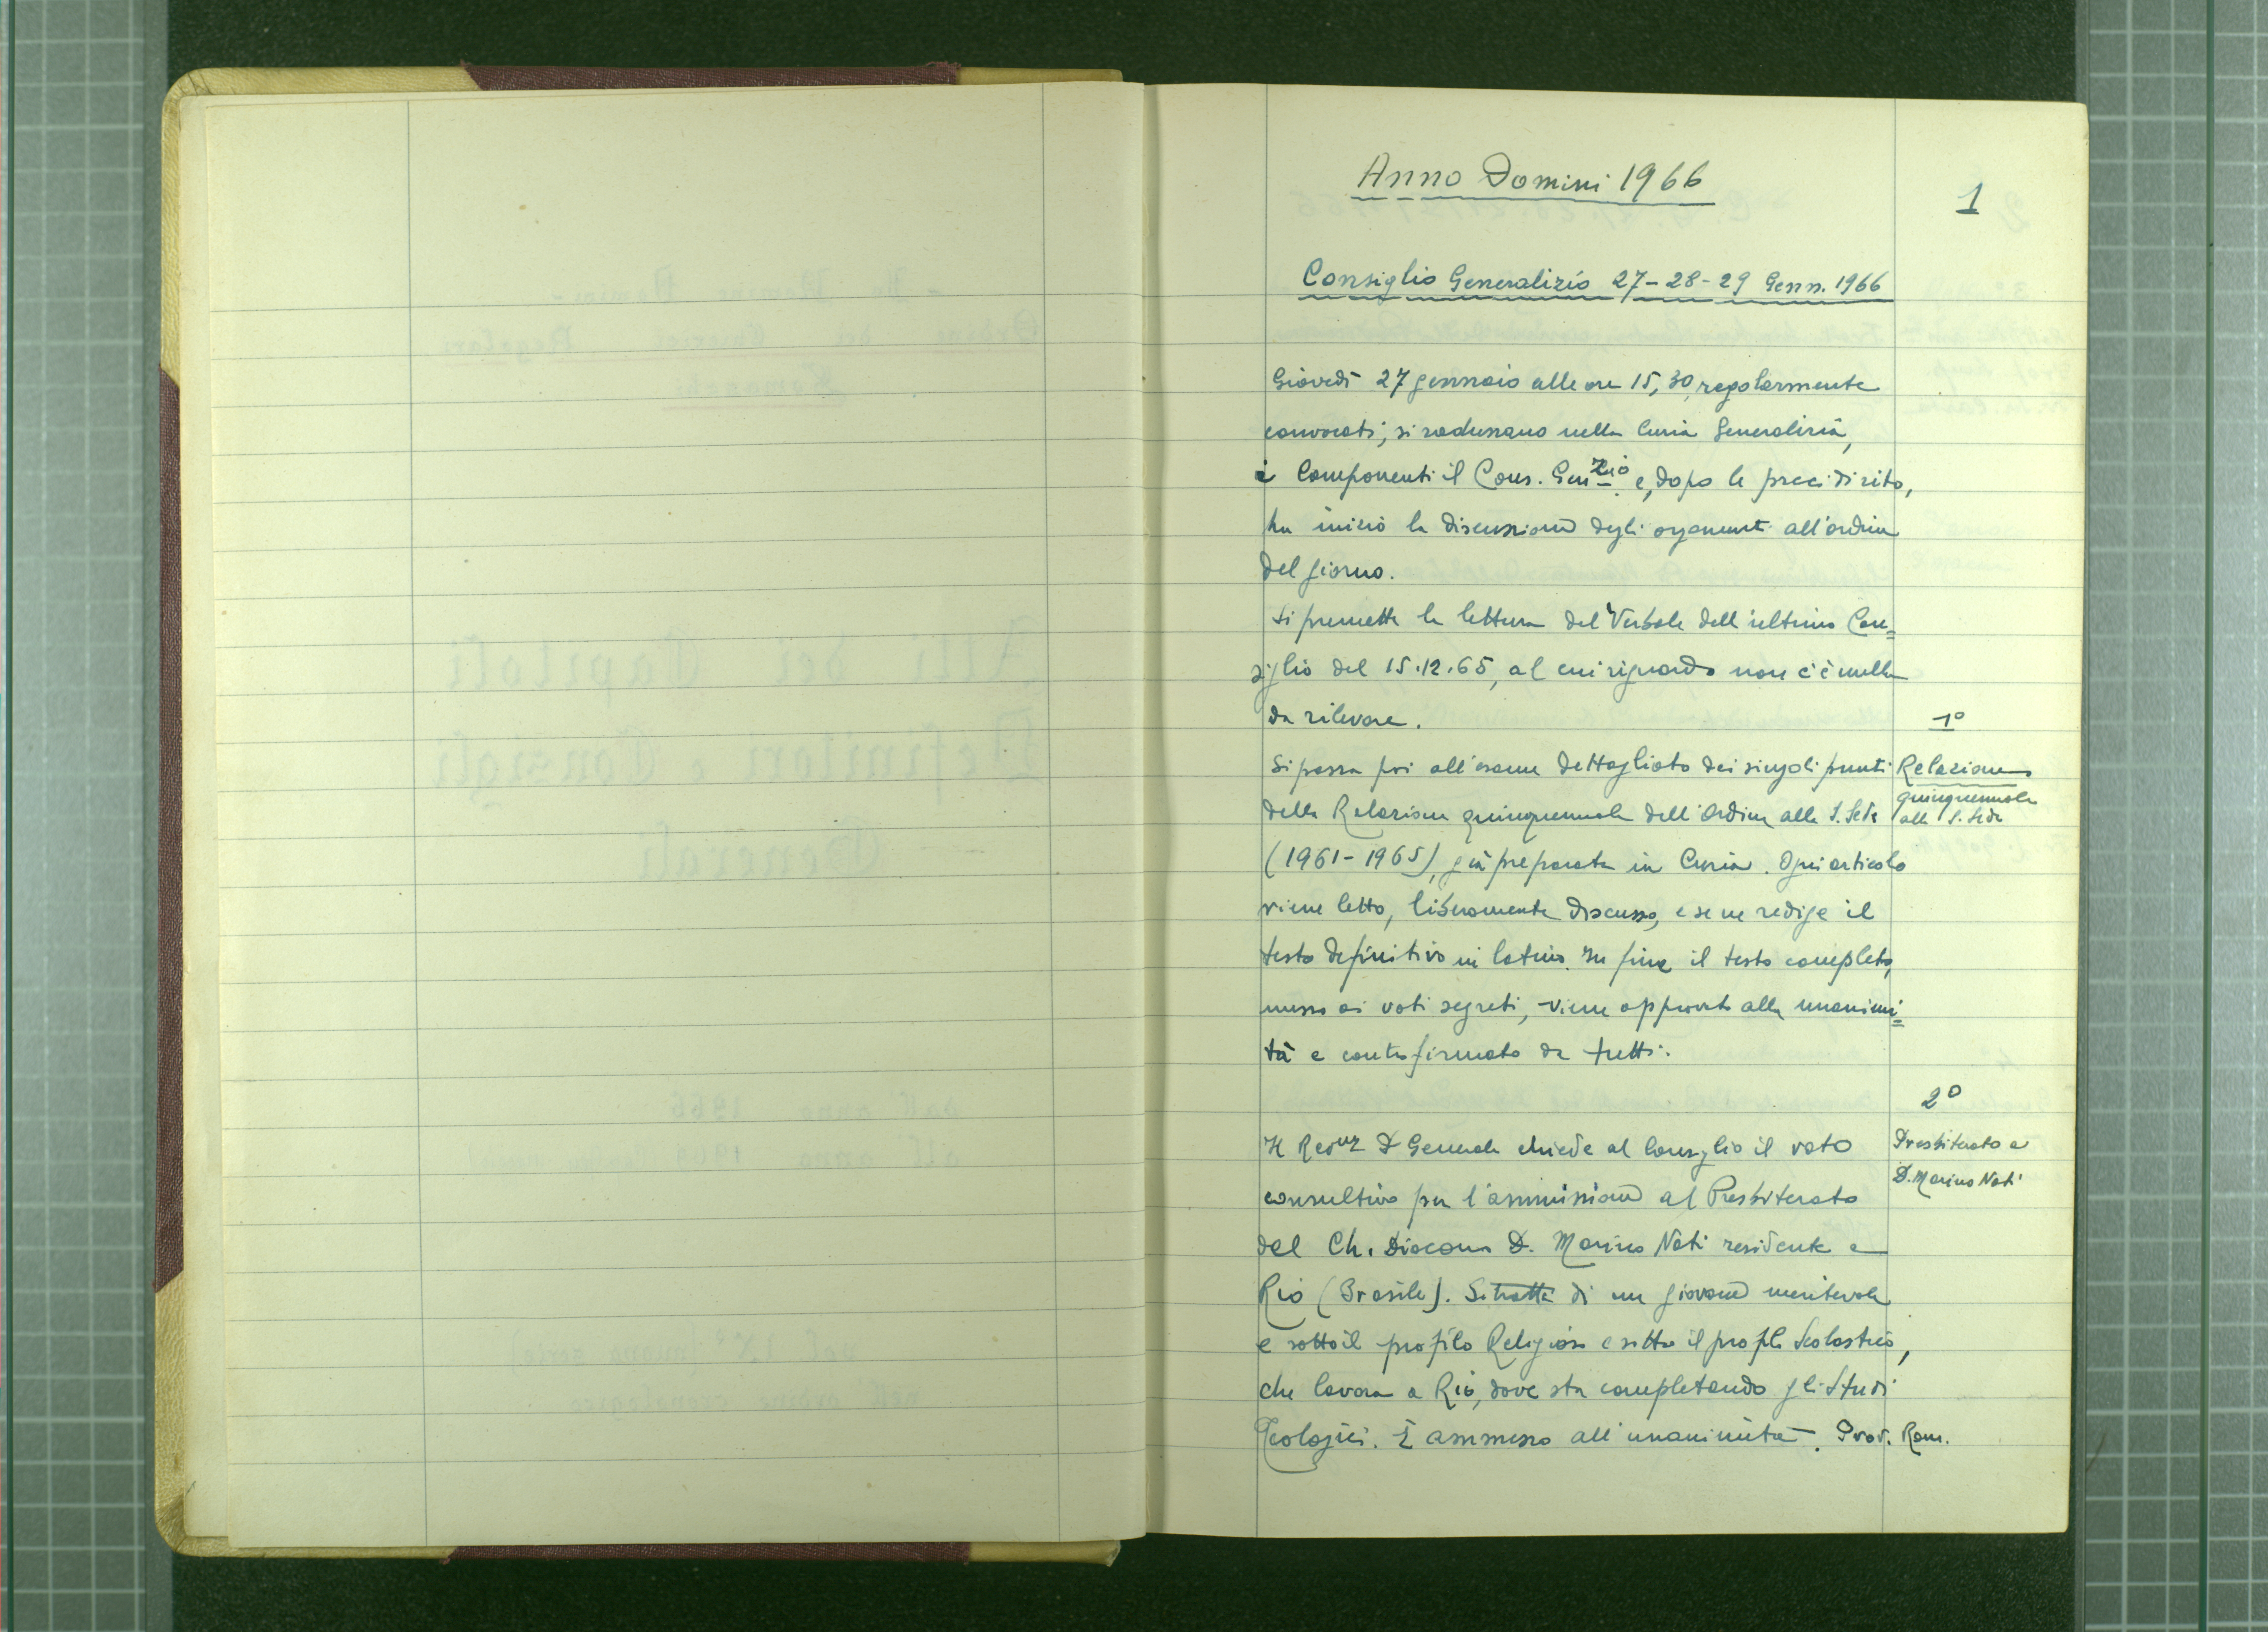 Anno Domini 1966
1
Consiglio Generalizio 27-28-29 Genn. 1966
Giovedì 27 gennaio alle ore 15,30, regolarmente
convocati, si radunano nella Curia Generalizia,
i Componenti il Cons. Gen.zio e, dopo le preci di rito,
ha inizio la discussione degli argomenti all'ordine
del giorno.
Si premette la lettura del Verbale dell'ultimo Con=
siglio del 15.12.65, al cui riguardo non c'è nulla
da rilevare.
1°
Relazione
quinquennale
alla S. Sede
Si passa poi all'esame dettagliato dei singoli punti
della Relazione quinquennale dell'Ordine alla S. Sede
(1961-1965), già preparata in Curia. Ogni articolo
viene letto, liberamente discusso, e se ne redige il
testo definitivo in latino. In fine il testo completo,
messo ai voti segreti, viene approvato alla unanimi=
tà e controfirmato da tutti.
2°
Presbiterato a
D. Marino Nati
Il Rev.mo P. Generale chiede al Consiglio il voto
consultivo per l'ammissione al Presbiterato
del Ch. Diacono D. Marino Nati residente a
Rio (Brasile). Si tratta di un giovane meritevole
e sotto il profilo Religioso e sotto il profilo Scolastico,
che lavora a Rio, dove sta completando gli Studi
Teologici. È ammesso all'unanimità. Prov. Rom.